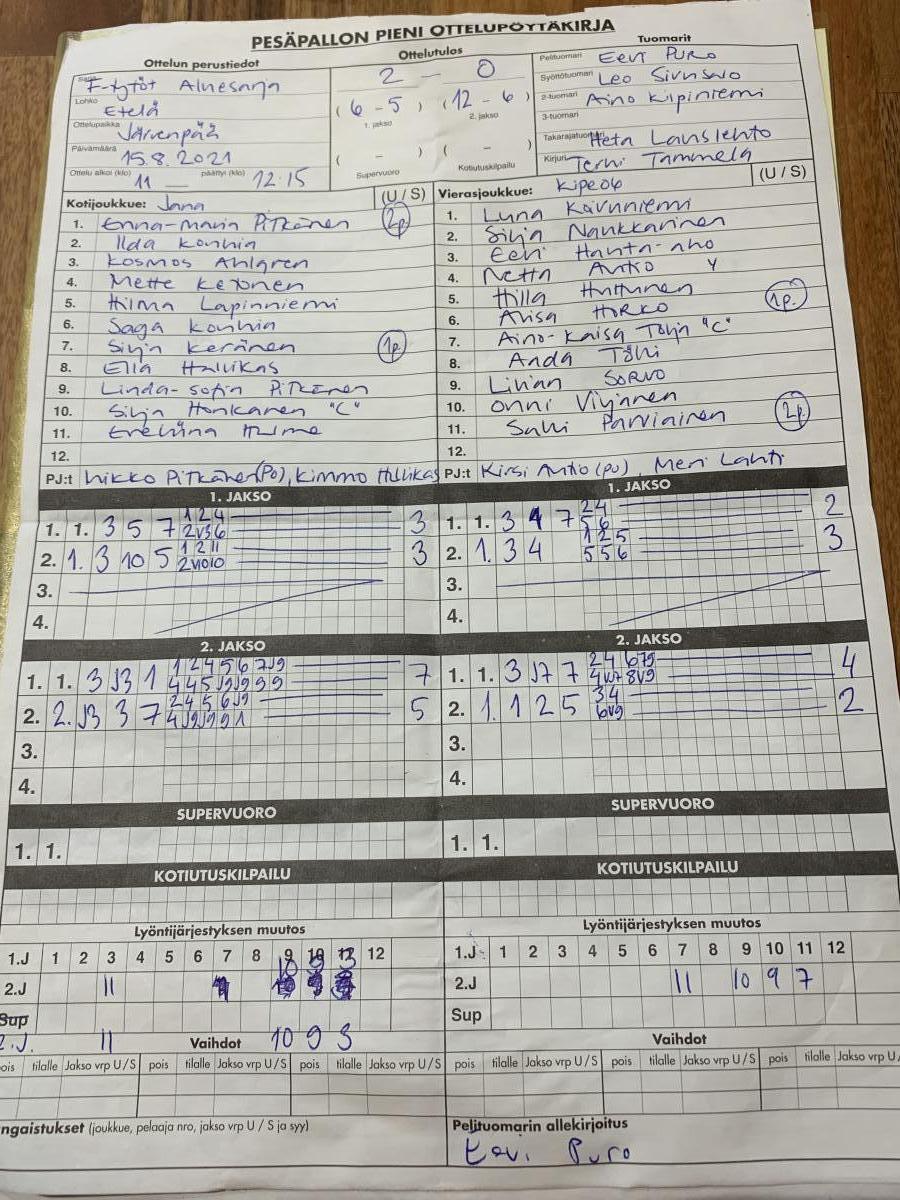 PESÄPALLON PIENI OTTELUPÖYTÄKIRJA
Ottelun perustiedot
Ottelutulos
Tuomarit
Sarja F-tytöt Aluesarja
Lohko Etelä
Ottelupaikka Järvenpää
Päivämäärä 15.8.2021
Ottelu alkoi (klo) 11 — päättyi (klo) 12.15
2 - 0
(6-5) (12-6)
1. jakso 2. jakso
( - ) ( - )
Supervuoro Kotiutuskilpailu
Pelituomari Eevi PURO
Syöttötuomari Leo Sivusalo
2-tuomari Aino Kilpiniemi
3-tuomari
Takarajatuomari Heta Lauslehto
Kirjuri Terhi Tammela
Kotijoukkue: Jana (U / S)
1. Enna-maria Pitkänen 2p
2. Ilda Konhia
3. Kosmos Ahlgren
4. Mette Ketonen
5. Hilma Lapinniemi
6. Saga Konhia
7. Silja Keränen 1p.
8. Ella Hallikas
9. Linda-sofia Pitkänen
10. Silja Honkanen "C"
11. Eveliina
12.
PJ:t Mikko Pitkänen(Po), Kimmo Hallikas
Vierasjoukkue: Kipe06 (U / S)
1. Luna Koivuniemi
2. Silja Naukkarinen
3. Eevi Hauta-aho
4. Netta Autio Y
5. Hilla Huttunen
6. Alisa HURKO 1p.
7. Aino-Kaisa Tolja "C"
8. Anda Tähi
9. Livian SORVO
10. Onni Viljanen
11. Salli Parviainen 2p.
12.
PJ:t Kirsi Autio (pu), Meri Lahti
1. JAKSO
1. 1. 3 5 7 1 2 4 3
2 V3 6
2. 1. 3 10 5 1 2 11 3
2 V10 10
3.
4.
1. JAKSO
1. 1. 3 4 7 2 4 2
5 6
2. 1. 3 4 1 2 5 3
5 5 6
3.
4.
2. JAKSO
1. 1. 3 J3 1 1 2 4 5 6 7 J9 7
4 4 5 J9 J9 9 9
2. 2. J3 3 7 2 4 5 6 J9 5
4 J9 J9 9 1
3.
4.
2. JAKSO
1. 1. 3 J7 7 2 4 6 7 9 4
4 V7 8 V9
2. 1. 1 2 5 3 4 2
6 V9
3.
4.
SUPERVUORO
1. 1.
SUPERVUORO
1. 1.
KOTIUTUSKILPAILU
KOTIUTUSKILPAILU
Lyöntijärjestyksen muutos
1.J 1 2 3 4 5 6 7 8 9 10 11 12
2.J 11
Sup
2.J. 11 10 9 3
Lyöntijärjestyksen muutos
1.J 1 2 3 4 5 6 7 8 9 10 11 12
2.J 11 10 9 7
Sup
Vaihdot
pois tilalle Jakso vrp U / S pois tilalle Jakso vrp U / S pois tilalle Jakso vrp U / S
Vaihdot
pois tilalle Jakso vrp U / S pois tilalle Jakso vrp U / S pois tilalle Jakso vrp U /
ngaistukset (joukkue, pelaaja nro, jakso vrp U / S ja syy)
Pelituomarin allekirjoitus
Eevi Puro